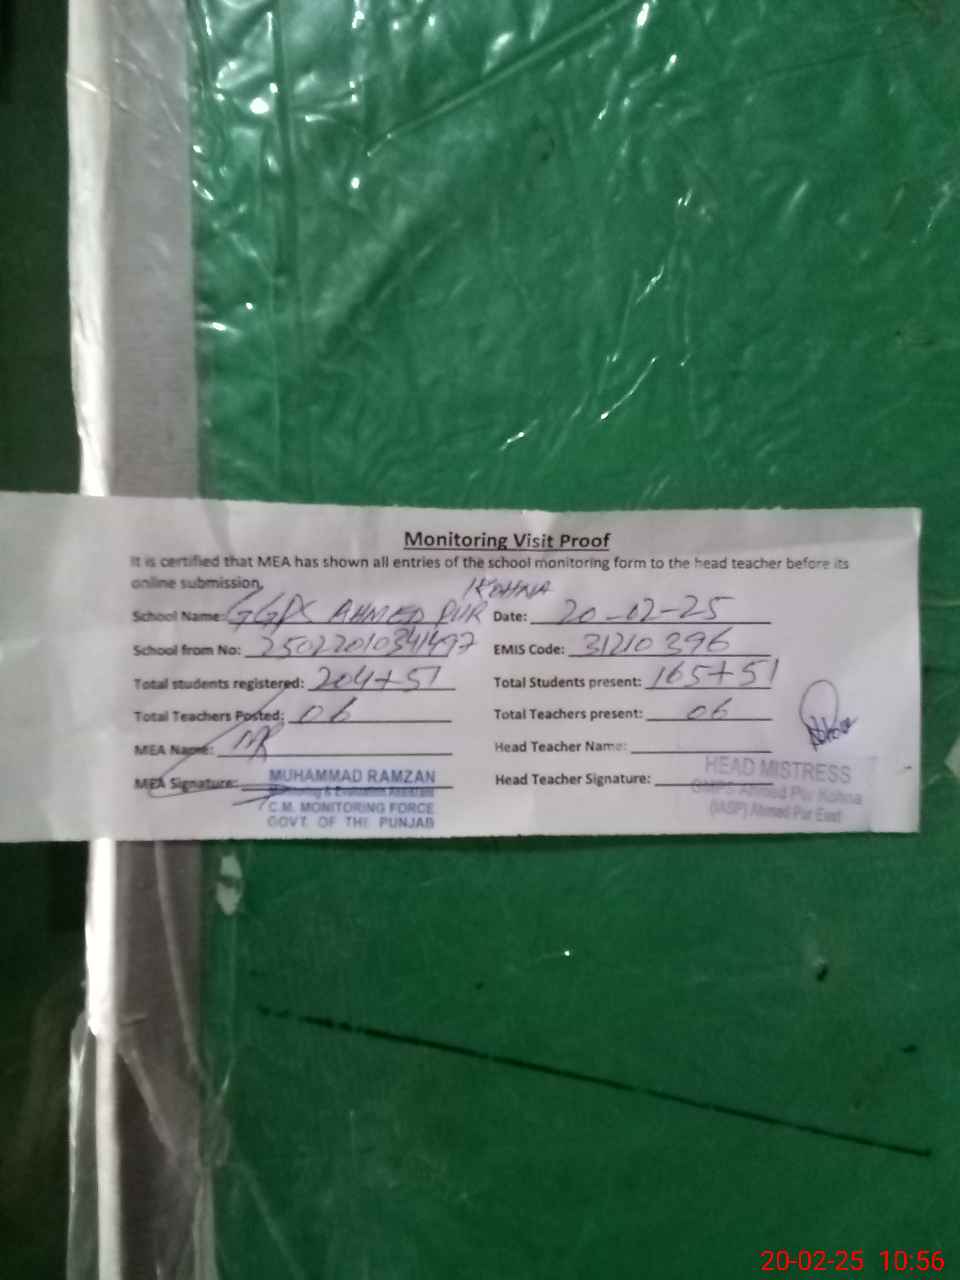 Monitoring Visit Proof
It is certified that MEA has shown all entries of the school monitoring form to the head teacher before its
online submission.
KOHNA
School Name: GGPS AHMED PUR Date: 20-02-25
School from No: EMIS Code: 31210396
Total students registered: 204+51 Total Students present: 165+51
Total Teachers Posted: 06 Total Teachers present: 06
MEA Name: MR Head Teacher Name:
MEA Signature: Head Teacher Signature:
MUHAMMAD RAMZAN
Monitoring & Evaluation Assistant
C.M. MONITORING FORCE
GOVT. OF THE PUNJAB
HEAD MISTRESS
Ahmed Pur Kohna
Ahmed Pur East
20-02-25 10:56